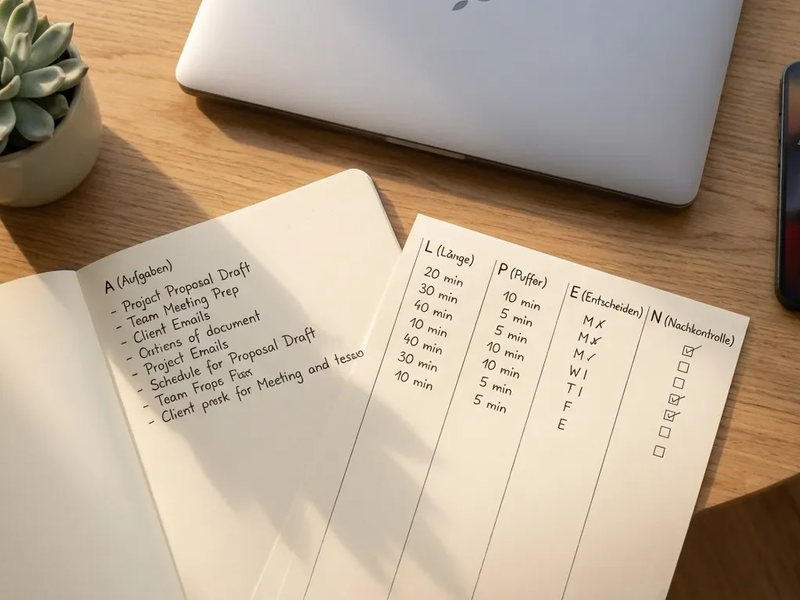 A (Aufgaben)
- Project Proposal Draft
- Team Meeting Prep
- Client Emails
- of document
- Project Emails
- Schedule for Proposal Draft
- Team Frops
- Client for Meeting and
L (Länge)
20 min
30 min
40 min
10 min
40 min
30 min
10 min
P (Puffer)
10 min
5 min
5 min
10 min
10 min
5 min
5 min
E (Entscheiden)
M
M
M
W
T
F
E
N (Nachkontrolle)